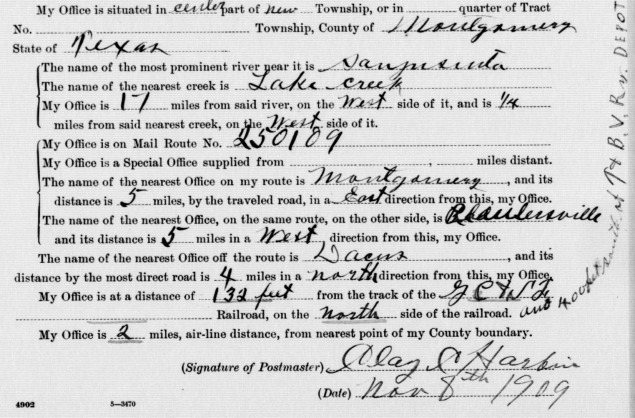 My Office is situated in center part of new Township, or in quarter of Tract
No. Township, County of Montgomery
State of Texas
The name of the most prominent river near it is Sanjasinta
The name of the nearest creek is Lake creek
My Office is 17 miles from said river, on the West side of it, and is 1/4
miles from said nearest creek, on the West side of it.
My Office is on Mail Route No. 250109
My Office is a Special Office supplied from , miles distant.
The name of the nearest Office on my route is Montgomery, and its
distance is 5 miles, by the traveled road, in a East direction from this, my Office.
The name of the nearest Office, on the same route, on the other side, is
and its distance is 5 miles in a West direction from this, my Office.
The name of the nearest Office off the route is Dacus, and its
distance by the most direct road is 4 miles in a north direction from this, my Office.
My Office is at a distance of 132 feet from the track of the G C & S F
Railroad, on the north side of the railroad.
My Office is 2 miles, air-line distance, from nearest point of my County boundary.
(Signature of Postmaster) Harbin
(Date) Nov 8th 1909
4902 5—3470
and 400 feet south of T & B. V. Ry. DEPOT